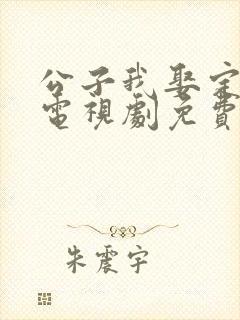 公子我娶定
電視劇免費
朱震宇